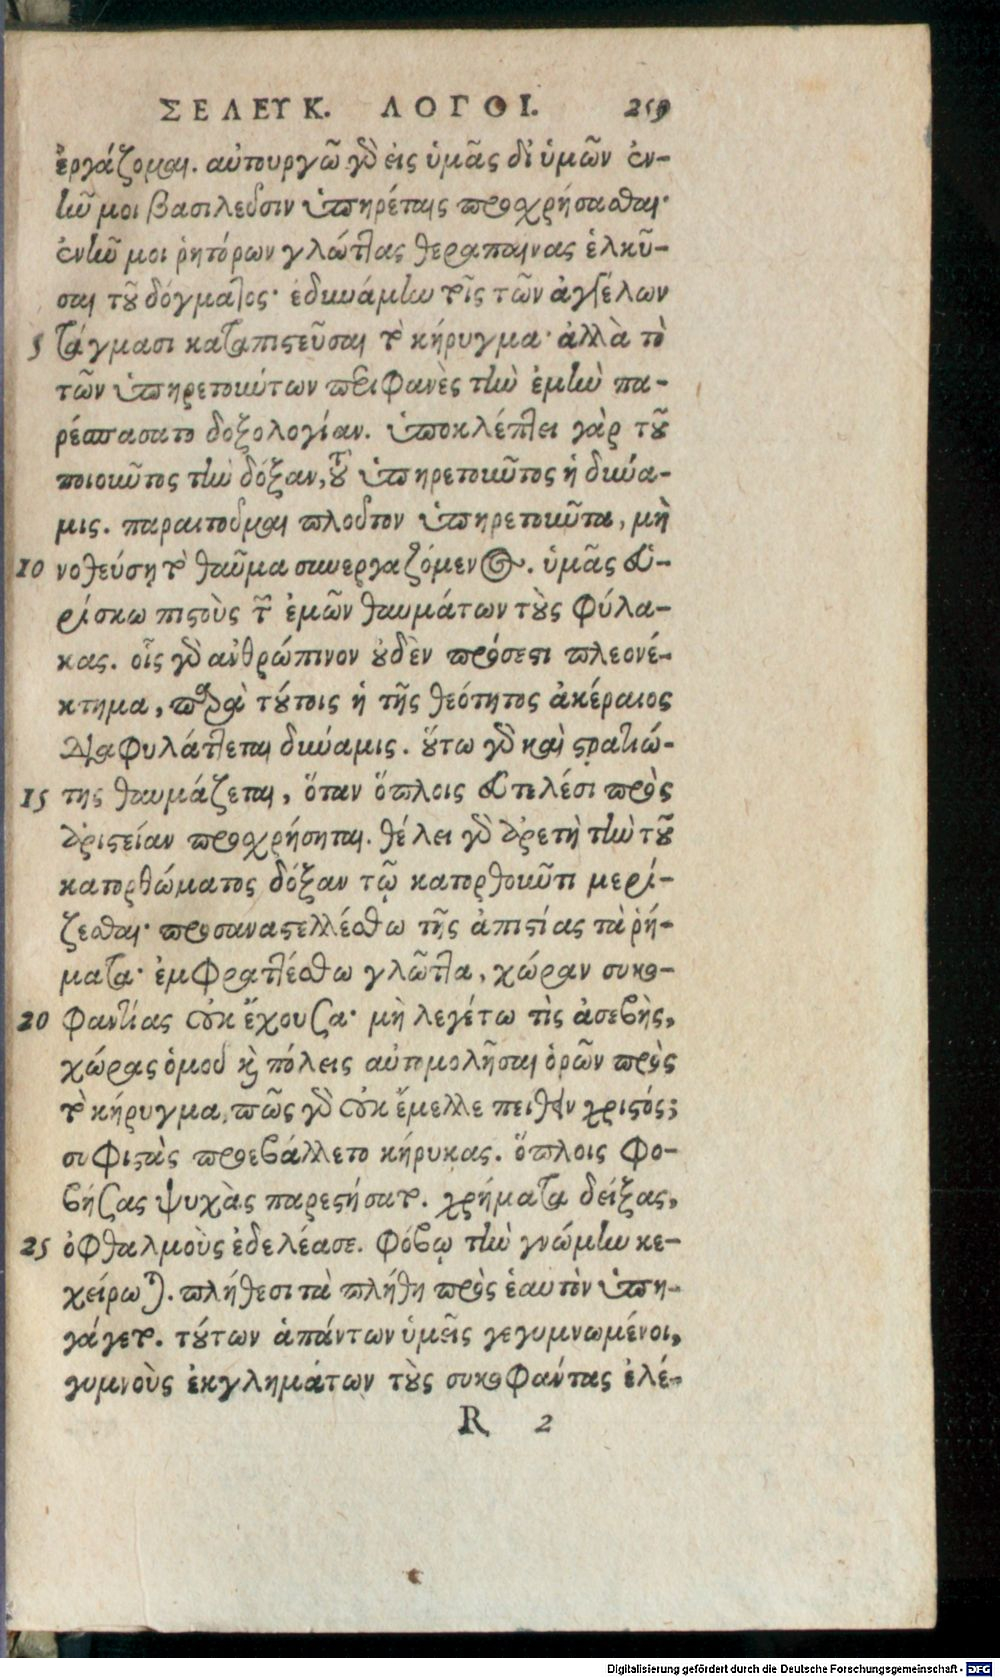 ΣΕΛΕΥΚ. ΛΟΓΟΙ. 259
ἐργάζομαι. αὐτουργῶ γὸ εἰς ὑμᾶς δι' ὑμῶν ἐν-
ἰῶ μοι βασιλεῦσιν ὑπηρέταις προχρήσασθαι·
ἐνῆν μοι ῥητόρων γλώττας θεραπαίνας ἑλκῦ-
σαι τοῦ δόγματος· ἐδυνάμην τοῖς τῶν ἀγγέλων
5 τάγμασι καταπιστεῦσαι τὸ κήρυγμα· ἀλλὰ τὸ
τῶν ὑπηρετούντων περιφανὲς τὴν ἐμὴν πα-
ρέσπασατο δοξολογίαν. ὑποκλέπτει γὰρ τοῦ
ποιοῦντος τὴν δόξαν, τοῦ ὑπηρετοῦντος ἡ δύνα-
μις. παραιτοῦμαι πλοῦτον ὑπηρετοῦντα, μὴ
10 νοθεύσῃ τὸ θαῦμα συνεργαζόμενος. ὑμᾶς εὑ-
ρίσκω πιστοὺς τῶν ἐμῶν θαυμάτων τοὺς φύλα-
κας. οἷς γὸ ἀνθρώπινον οὐδὲν πρόσεστι πλεονέ-
κτημα, παρὰ τούτοις ἡ τῆς θεότητος ἀκέραιος
διαφυλάττεται δύναμις. οὕτω γὸ καὶ στρατιώ-
15 της θαυμάζεται, ὅταν ὅπλοις εὐτελέσι πρὸς
ἀριστείαν προχρήσηται. θέλει γὸ ἀρετὴ τὴν τοῦ
κατορθώματος δόξαν τῷ κατορθοῦντι μερί-
ζεσθαι· προσαναστελλέσθω τῆς ἀπιστίας τὰ ῥή-
ματα· ἐμφραττέσθω γλῶττα, χώραν συκο-
20 φαντίας οὐκ ἔχουσα· μὴ λεγέτω τὶς ἀσεβὴς,
χώρας ὁμοῦ καὶ πόλεις αὐτομολῆσαι ὁρῶν πρὸς
τὸ κήρυγμα, πῶς γὸ οὐκ ἔμελλε πείθειν χριστός;
σοφιστὰς προεβάλλετο κήρυκας. ὅπλοις φο-
βήσας ψυχὰς παρεστήσατο. χρήματα δείξας,
25 ὀφθαλμοὺς ἐδελέασε. φόβῳ τὴν γνώμην κε-
χείρωται. πλήθεσι τὰ πλήθη πρὸς ἑαυτὸν ὑπη-
γάγετο. τούτων ἁπάντων ὑμεῖς γεγυμνωμένοι,
γυμνοὺς ἐκγλημάτων τοὺς συκοφάντας ἐλέ-
R 2
Digitalisierung gefördert durch die Deutsche Forschungsgemeinschaft - DFG